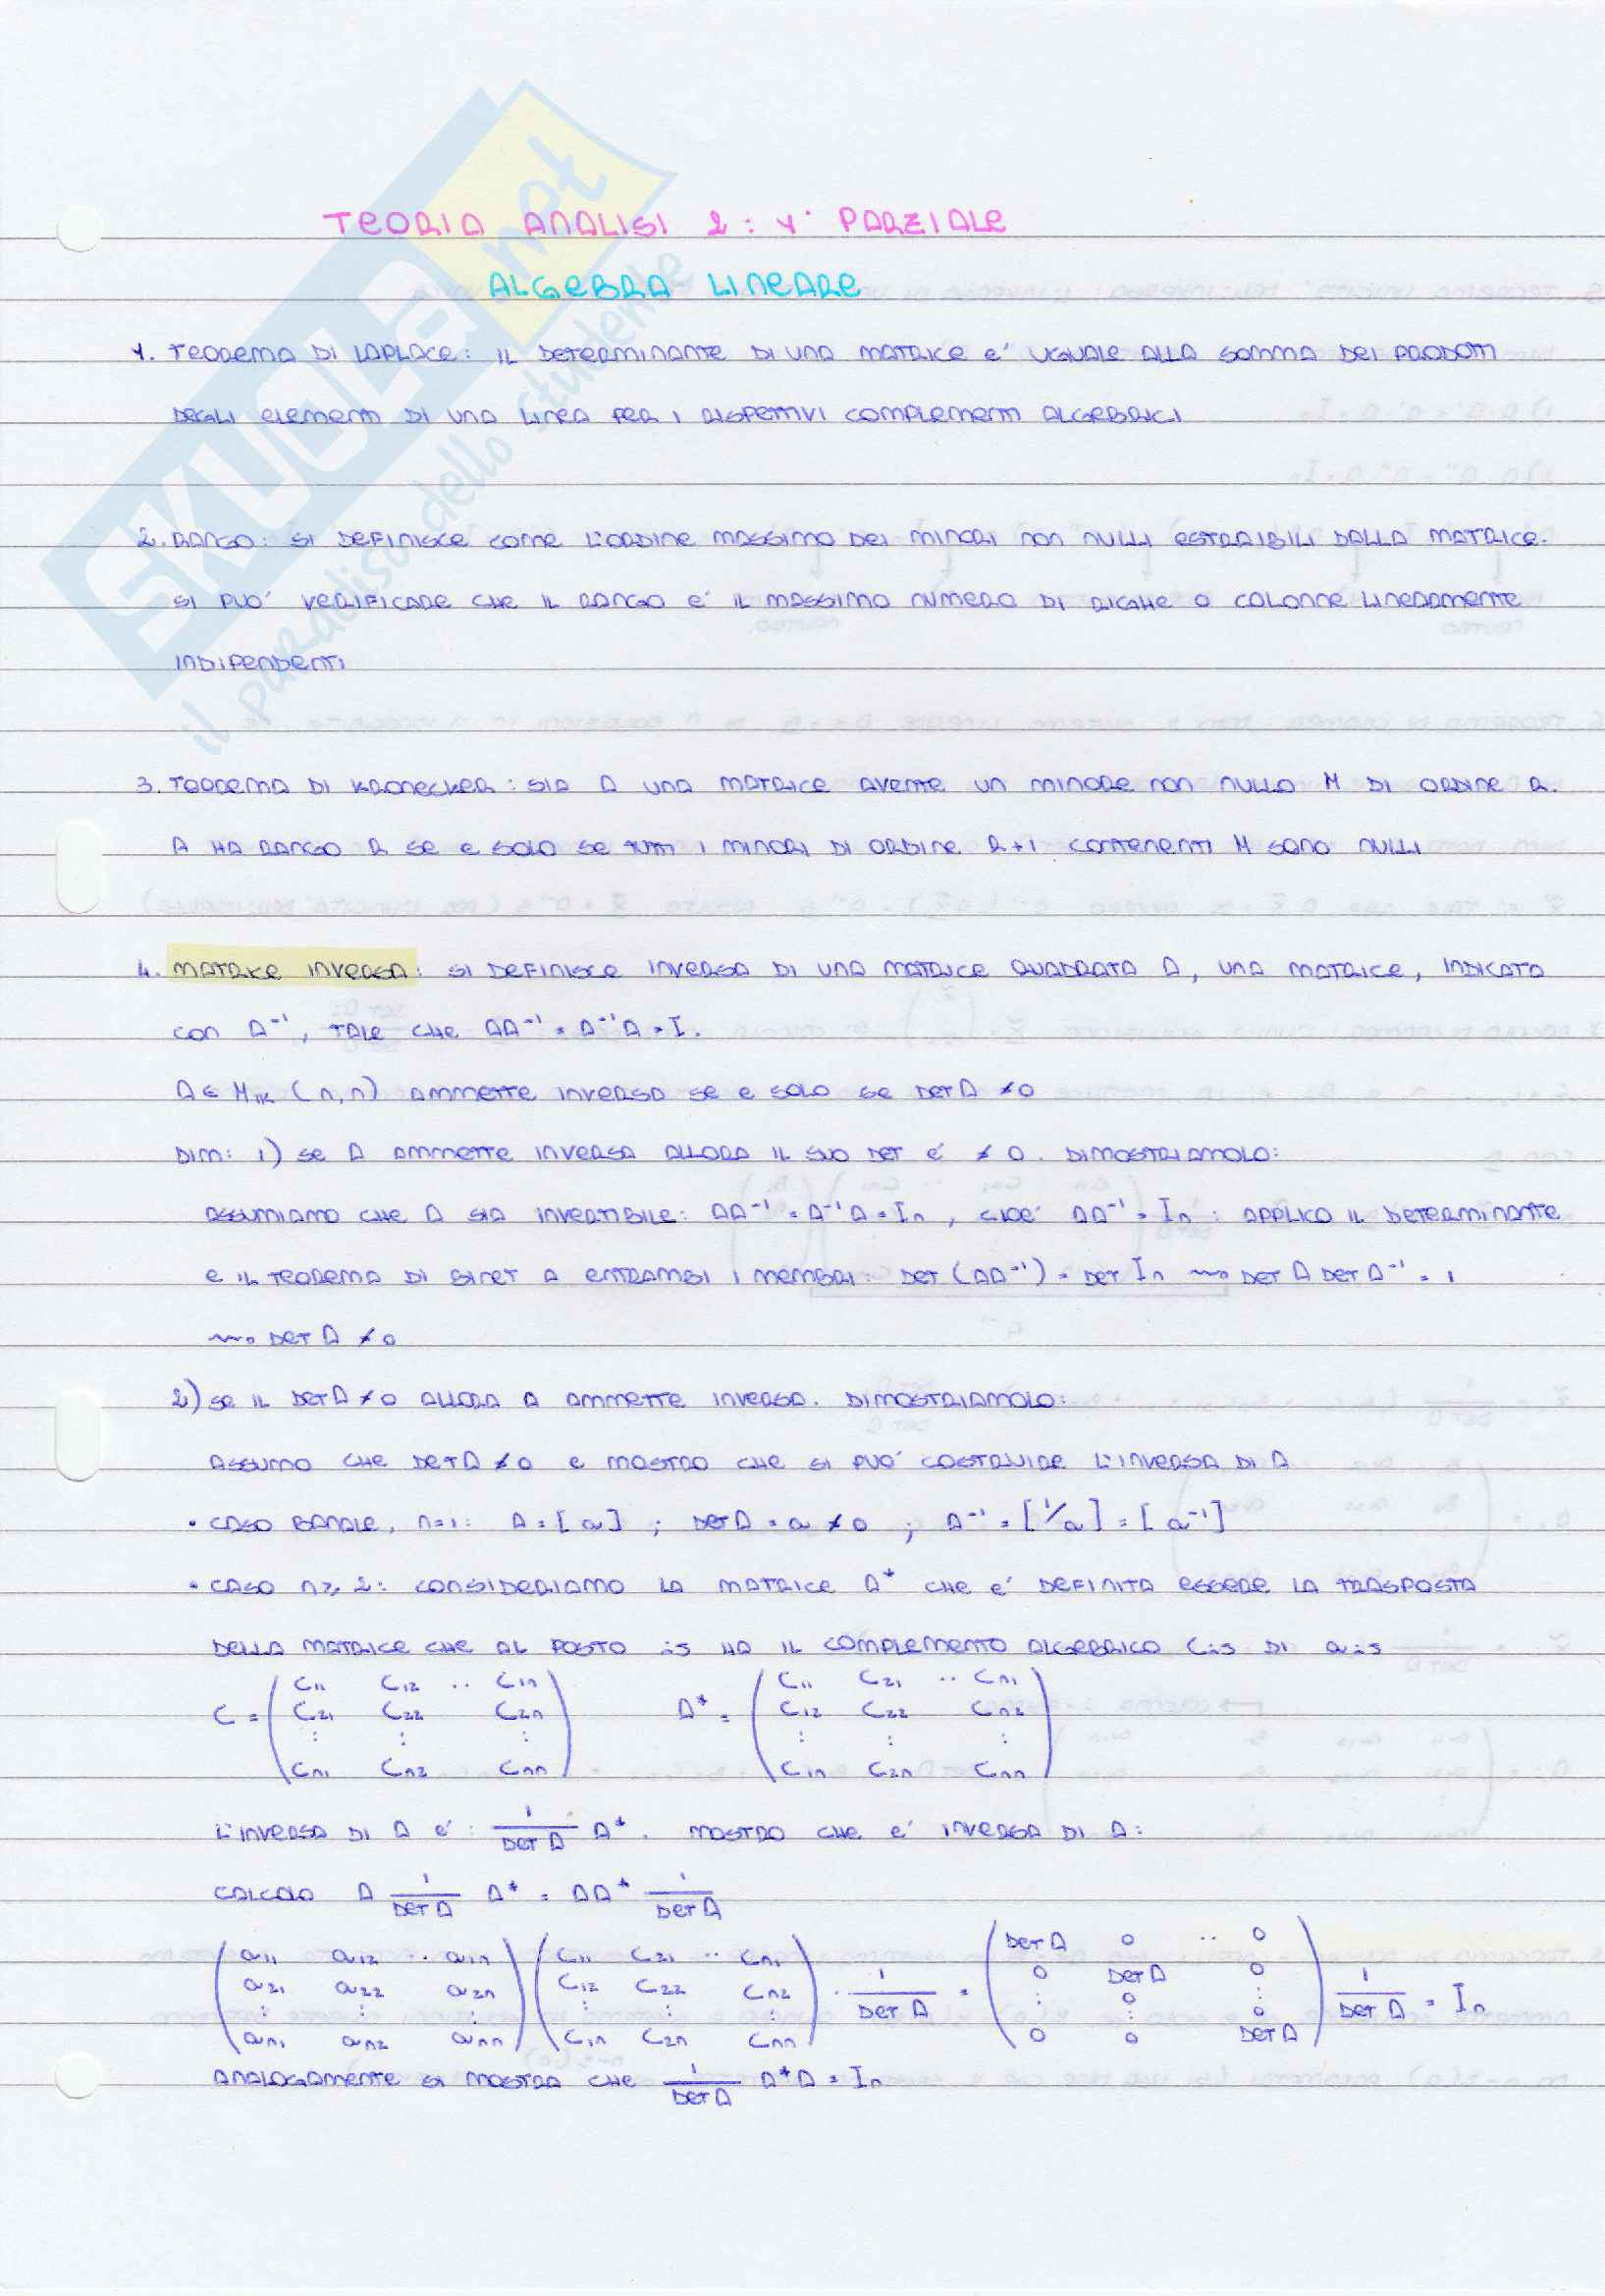 TEORIA ANALISI 2: 1° PARZIALE
ALGEBRA LINEARE
1. TEOREMA DI LAPLACE: IL DETERMINANTE DI UNA MATRICE E' UGUALE ALLA SOMMA DEI PRODOTTI
DEGLI ELEMENTI DI UNA LINEA PER I RISPETTIVI COMPLEMENTI ALGEBRICI
2. RANGO: SI DEFINISCE COME L'ORDINE MASSIMO DEI MINORI NON NULLI ESTRAIBILI DALLA MATRICE.
SI PUO' VERIFICARE CHE IL RANGO E' IL MASSIMO NUMERO DI RIGHE O COLONNE LINEARMENTE
INDIPENDENTI
3. TEOREMA DI KRONECKER: SIA A UNA MATRICE AVENTE UN MINORE NON NULLO M DI ORDINE R.
A HA RANGO R SE E SOLO SE TUTTI I MINORI DI ORDINE R+1 CONTENENTI M SONO NULLI
4. MATRICE INVERSA: SI DEFINISCE INVERSA DI UNA MATRICE QUADRATA A, UNA MATRICE, INDICATA
CON A⁻¹, TALE CHE AA⁻¹ = A⁻¹A = I.
A ∈ M_IK (n,n) AMMETTE INVERSA SE E SOLO SE DET A ≠ 0
DIM: 1) SE A AMMETTE INVERSA ALLORA IL SUO DET E' ≠ 0. DIMOSTRIAMOLO:
ASSUMIAMO CHE A SIA INVERTIBILE: AA⁻¹ = A⁻¹A = In, CIOE' AA⁻¹ = In: APPLICO IL DETERMINANTE
E IL TEOREMA DI BINET A ENTRAMBI I MEMBRI: DET (AA⁻¹) = DET In ⇝ DET A DET A⁻¹ = 1
⇝ DET A ≠ 0
2) SE IL DET A ≠ 0 ALLORA A AMMETTE INVERSA. DIMOSTRIAMOLO:
ASSUMO CHE DET A ≠ 0 E MOSTRO CHE SI PUO' COSTRUIRE L'INVERSA DI A
• CASO BANALE, n=1: A = [a] ; DET A = a ≠ 0 ; A⁻¹ = [1/a] = [a⁻¹]
• CASO n ≥ 2: CONSIDERIAMO LA MATRICE A* CHE E' DEFINITA ESSERE LA TRASPOSTA
DELLA MATRICE CHE AL POSTO ij HA IL COMPLEMENTO ALGEBRICO Cij DI aij
C = ( C11 C12 .. C1n A* = ( C11 C21 .. Cn1
C21 C22 C2n C12 C22 Cn2
⋮ ⋮ ⋮ ⋮ ⋮ ⋮
Cn1 Cn2 Cnn ) C1n C2n Cnn )
L'INVERSA DI A E': 1/DET A A*. MOSTRO CHE E' INVERSA DI A:
CALCOLO A 1/DET A A* = AA* 1/DET A
( a11 a12 .. a1n ) ( C11 C21 .. Cn1 ) ( DET A 0 .. 0 )
a21 a22 a2n C12 C22 Cn2 · 1/DET A = 0 DET A 0 1/DET A = In
⋮ ⋮ ⋮ ⋮ ⋮ ⋮ ⋮ 0 ⋮
an1 an2 ann C1n C2n Cnn 0 0 DET A
ANALOGAMENTE SI MOSTRA CHE 1/DET A A*A = In
SKUOLA.net
il paradiso dello studente